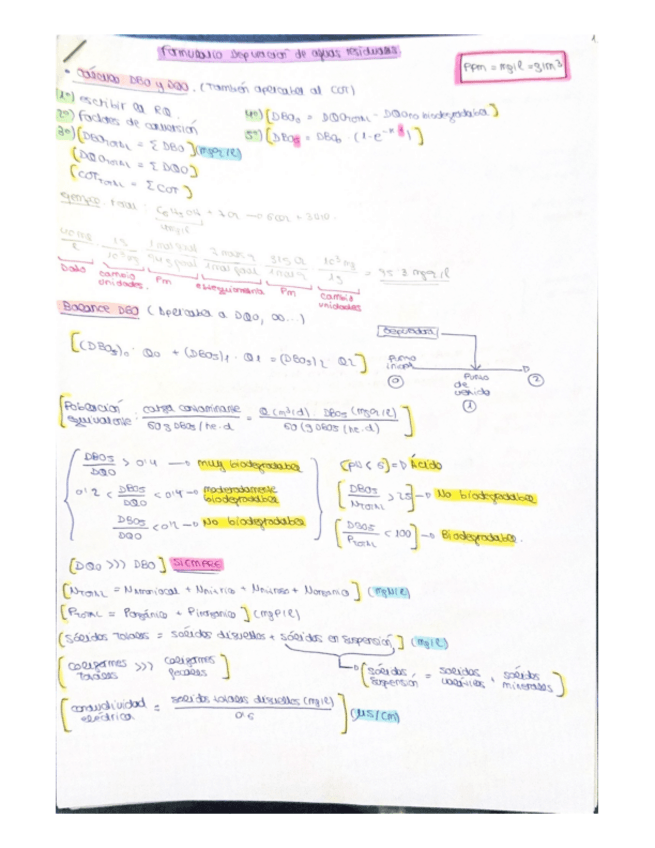 Formulario Depuración de aguas residuales
ppm = mg/l = g/m³
• Cálculo DBO y DQO. (También aplicable al COT)
1º) escribir la RQ.
2º) Factores de conversión
3º) [DBO TOTAL = Σ DBO] (mg O₂/l)
[DQO TOTAL = Σ DQO]
[COT TOTAL = Σ COT]
4º) [DBO∞ = DQO TOTAL - DQO no biodegradable]
5º) [DBO₅ = DBO∞ (1-e^-k·t)]
Dato
cambio unidades.
Pm
estequiometría
Pm
cambio unidades
Balance DBO (Aplicable a DQO, ...)
[(DBO₅)₀ · Q₀ + (DBO₅)₁ · Q₁ = (DBO₅)₂ · Q₂]
Depuradora
Punto de vertido
⓪ ① ②
[Población equivalente: carga contaminante / 60 g DBO₅/he·d = Q (m³/d) · DBO₅ (mg O₂/l) / 60 (g DBO₅/he·d)]
DBO₅/DQO > 0'4 → muy biodegradable
0'2 < DBO₅/DQO < 0'4 → moderadamente biodegradable
DBO₅/DQO < 0'2 → No biodegradable
[pH < 5] => Ácido
[DBO₅/N TOTAL > 25] → No biodegradable
[DBO₅/P TOTAL < 100] → Biodegradable.
[DQO >>> DBO] SIEMPRE
[N TOTAL = N amoniacal + N nítrico + N nitroso + N orgánico] (mg N/l)
[P TOTAL = P orgánico + P inorgánico] (mg P/l)
[Sólidos totales = sólidos disueltos + sólidos en suspensión] (mg/l)
[coliformes totales >>> coliformes fecales]
[sólidos suspensión = sólidos volátiles + sólidos minerales]
[conductividad eléctrica = sólidos totales disueltos (mg/l) / 0'5] (µS/cm)